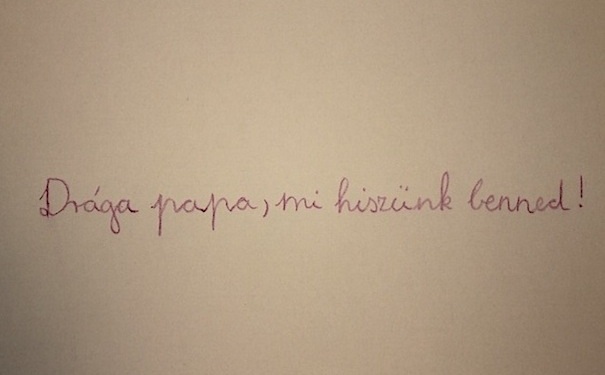 Drága papa, mi hiszünk benned!